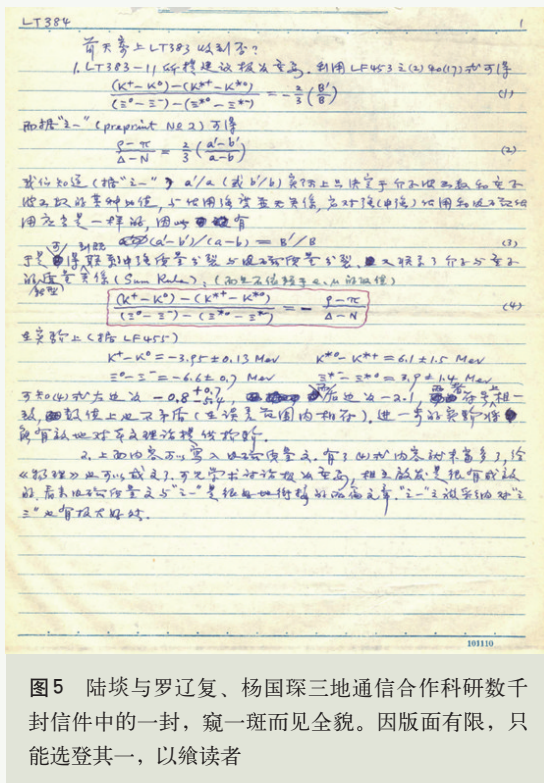 LT384 1
前天寄上LT383收到否?
1. LT383-11所提建议极为重要. 利用LF453之(2)和(17)式可得
(K⁺-K⁰)-(K*⁺-K*⁰) / (Ξ⁰-Ξ⁻)-(Ξ*⁰-Ξ*⁻) = -2/3 (B'/B) (1)
而据"之一" (preprint № 2) 可得
ρ-π / Δ-N = 2/3 (a'-b' / a-b) (2)
我们知道(据"之一") a'/a (或b'/b) 实际上只决定于介子波函数和重子
波函数的某种比值, 与作用强度并无关系, 应对强(中强)作用和电磁作
用应当是一样的, 因此 有
(a'-b')/(a-b) = B'/B (3)
于是可得到联系中强质量分裂与电磁质量分裂, 又联系了介子与重子
的质量关系(Sum Rule), (而且不依赖于 的取值)
(K⁺-K⁰)-(K*⁺-K*⁰) / (Ξ⁰-Ξ⁻)-(Ξ*⁰-Ξ*⁻) = - ρ-π / Δ-N (4)
在实验上(据LF455)
K⁺-K⁰=-3.95±0.13 Mev K*⁰-K*⁺=6.1±1.5 Mev
Ξ⁰-Ξ⁻=-6.6±0.7 Mev Ξ*⁻-Ξ*⁰=3.9±1.4 Mev
可知(4)式左边为 -0.8 右边为-2.1, 符号相一
致, 数值上也不矛盾(在误差范围内相符). 进一步的实验将
会有效地对本文理论提供检验.
2. 上面内容可写入电磁质量文. 有了(4)式内容就丰富多了, 给
《物理》也可以成文了. 可见学术讨论极为重要, 相互启发是很有成效
的. 看来电磁质量文与"之一"是很好地衔接的两篇文章. "之一"之被采纳对"之
三"也有极大好处.
101110
图5 陆埮与罗辽复、杨国琛三地通信合作科研数千
封信件中的一封，窥一斑而见全貌。因版面有限，只
能选登其一，以飨读者